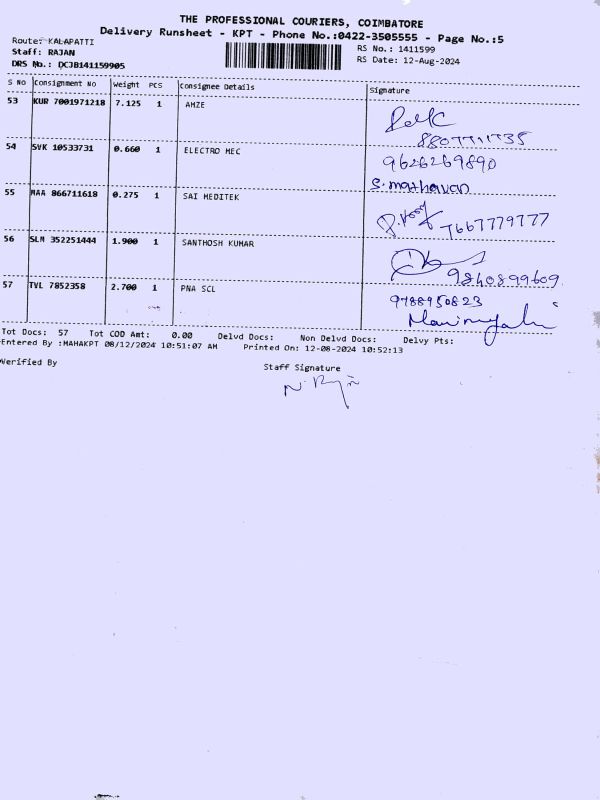 THE PROFESSIONAL COURIERS, COIMBATORE
Delivery Runsheet - KPT - Phone No.:0422-3505555 - Page No.:5
Route: KALAPATTI
RS No.: 1411599
Staff: RAJAN
RS Date: 12-Aug-2024
DRS No.: DCJB141159905
S NO Consignment No Weight PCS Consignee Details Signature
53 KUR 7001971218 7.125 1 AMZE
54 SVK 10533731 0.660 1 ELECTRO MEC
9626269890
S. mathavan
55 MAA 866711618 0.275 1 SAI MEDITEK
7667779777
56 SLM 352251444 1.900 1 SANTHOSH KUMAR
9840899609
57 TVL 7852358 2.700 1 PNA SCL
9788950823
Tot Docs: 57 Tot COD Amt: 0.00 Delvd Docs: Non Delvd Docs: Delvy Pts:
Entered By :MAHAKPT 08/12/2024 10:51:07 AM Printed On: 12-08-2024 10:52:13
Verified By
Staff Signature